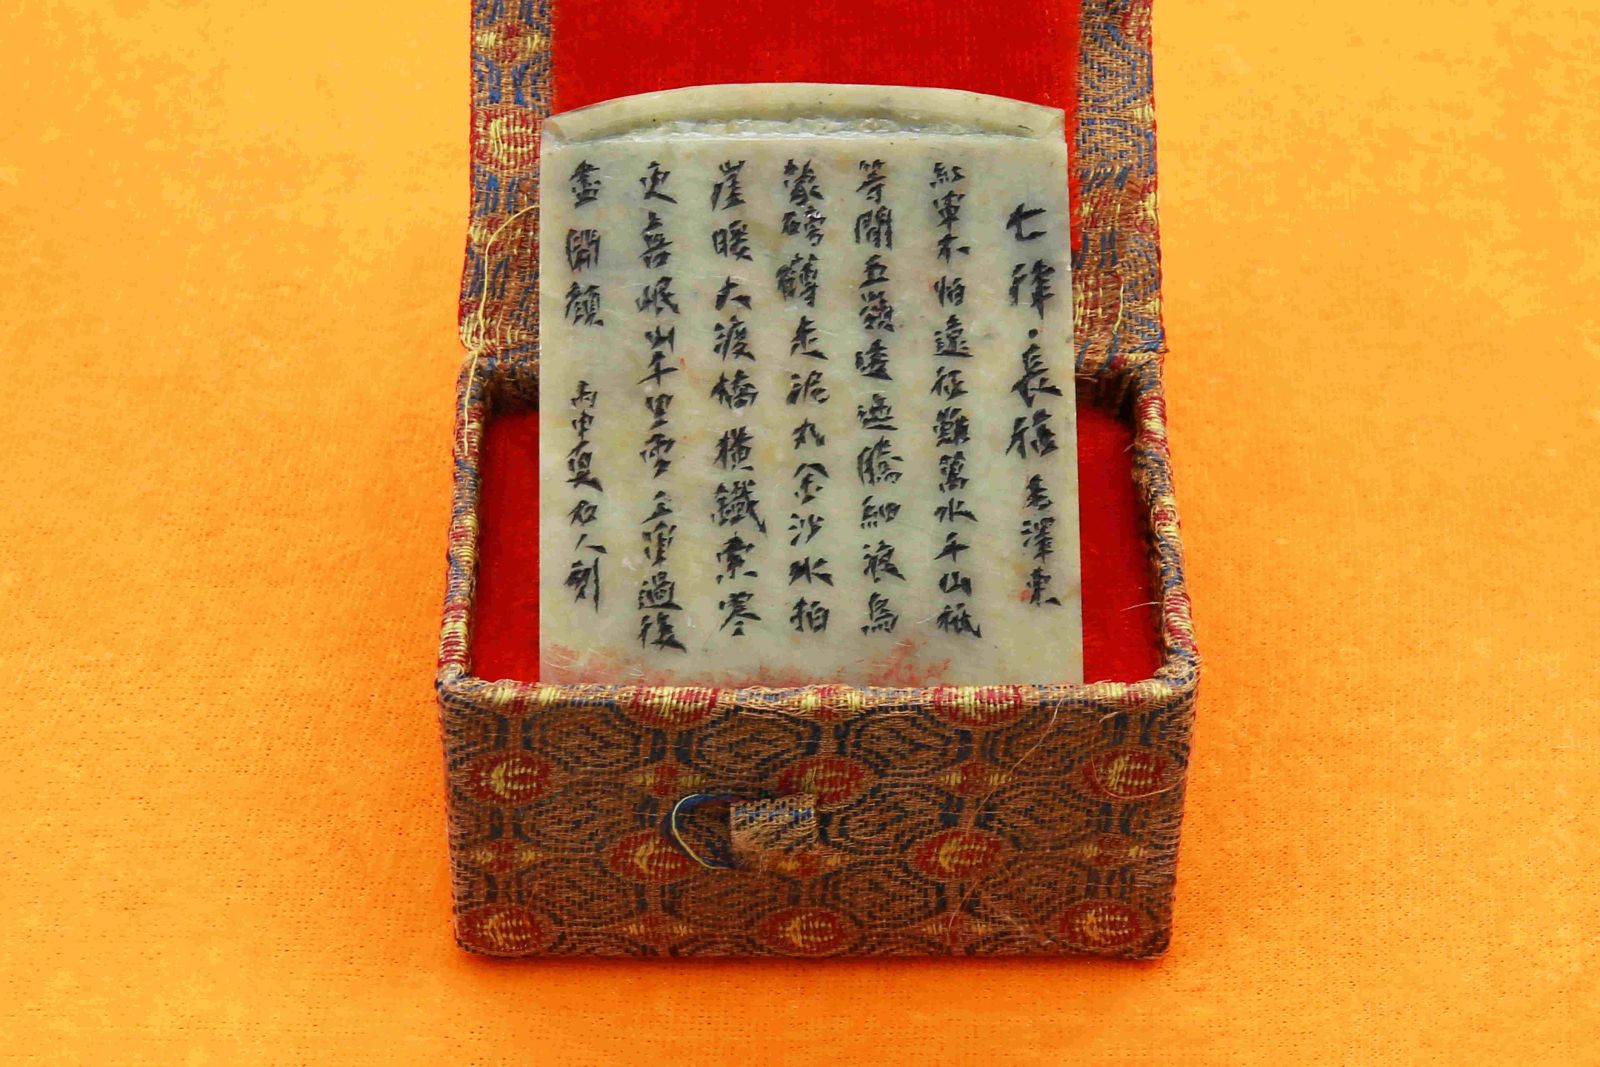 七律·長征 毛澤東
紅軍不怕遠征難萬水千山祇
等間五嶺逶迤騰細浪烏
蒙磅礴走泥丸金沙水拍
崖暖大渡橋橫鐵索寒
更喜岷山千里雪三軍過後
盡開顏 丙申吳石人刻